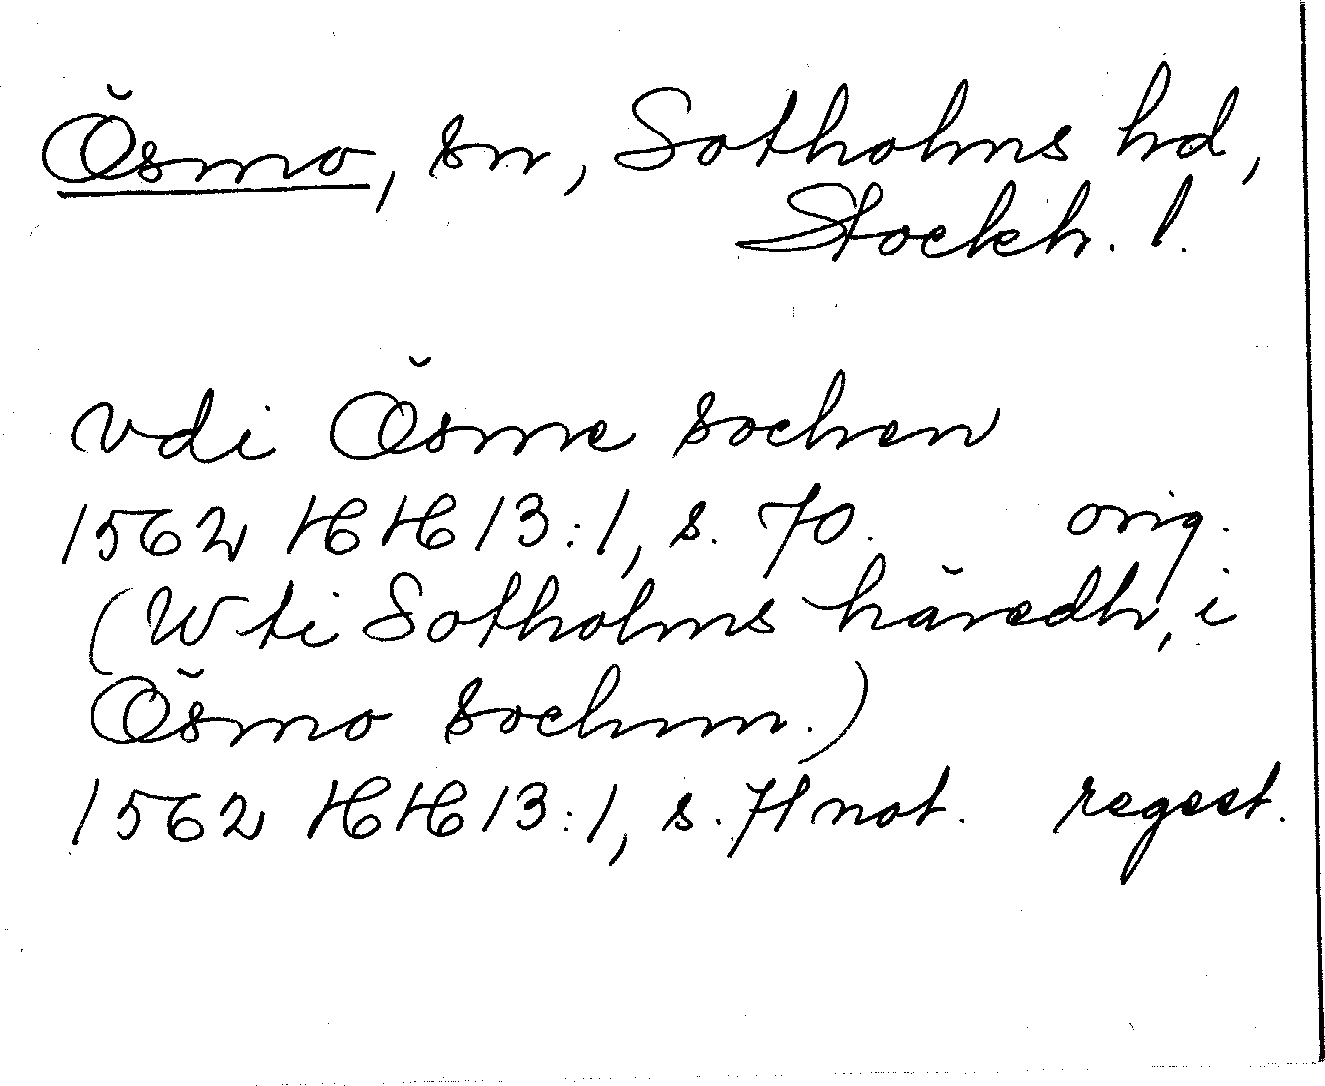 Ösmo, sn, Sotholms hd,
Stockh. l.
vdi Ösme sochen
1562 HH 13:1, s. 70. orig.
(W ti Sotholms häredh, i
Ösmo sochnn.)
1562 HH 13:1, s. 71 not. regest.